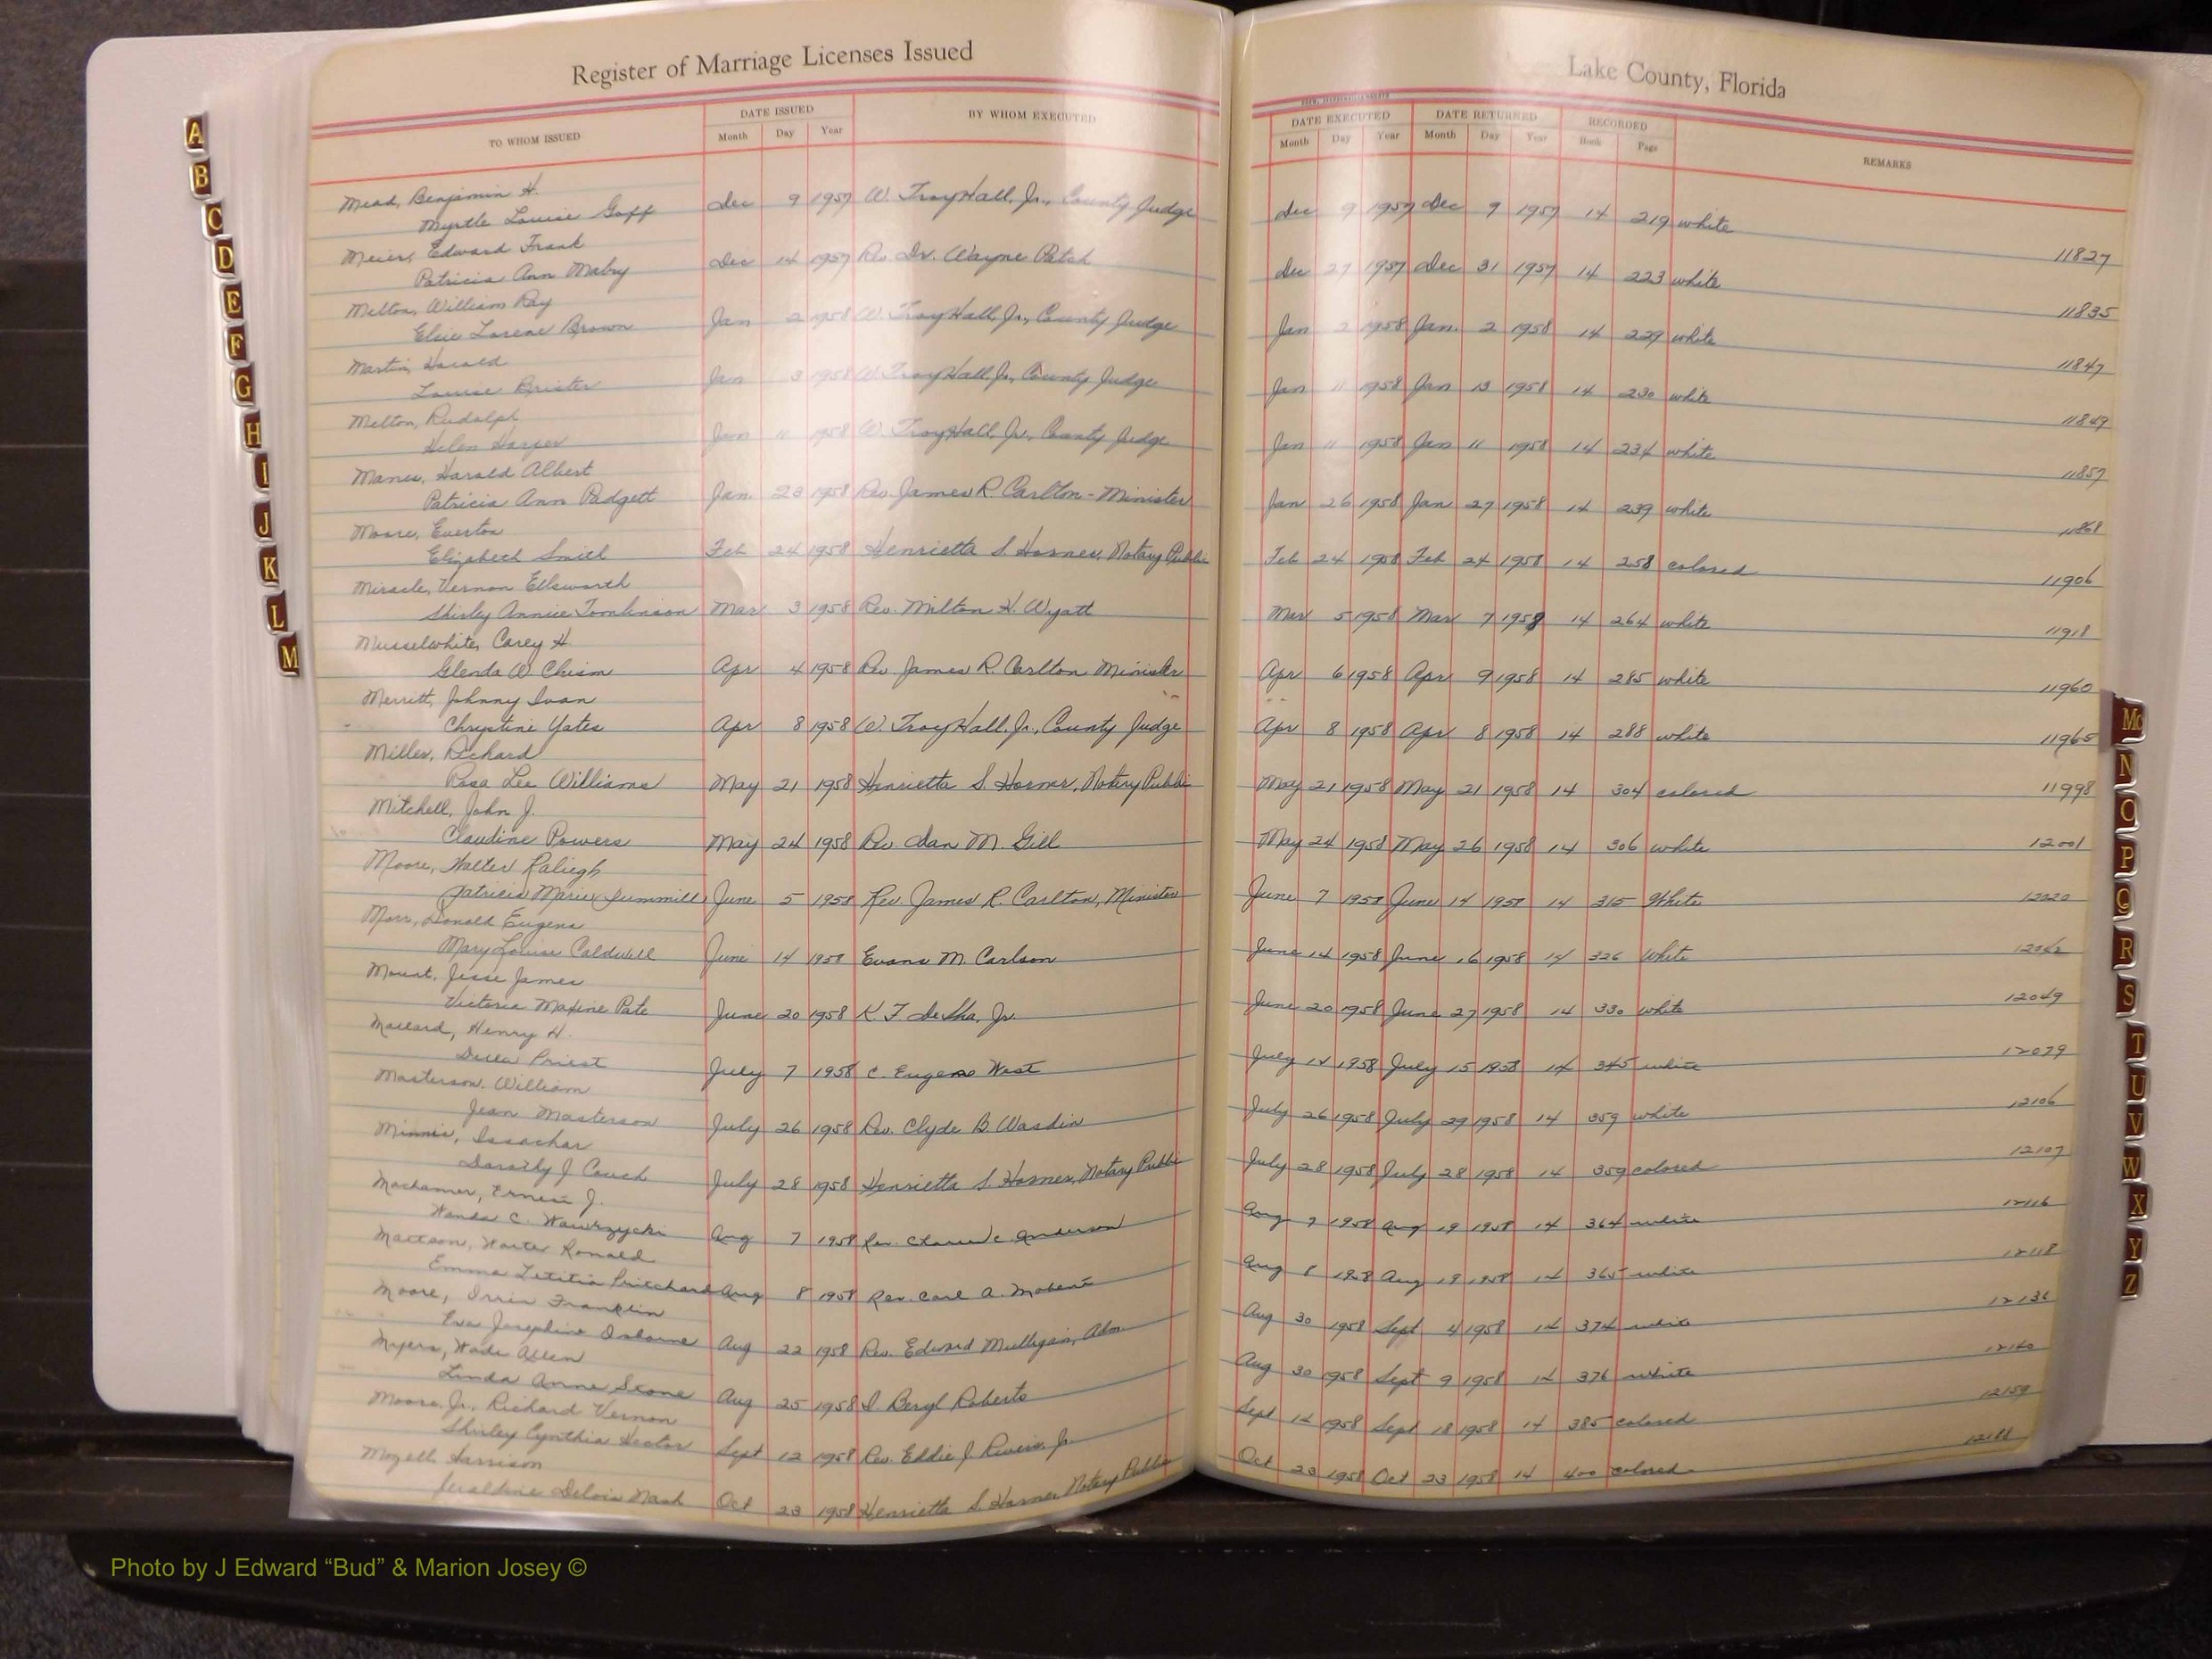 Register of Marriage Licenses Issued
Lake County, Florida
TO WHOM ISSUED
DATE ISSUED
Month Day Year
BY WHOM EXECUTED
DATE EXECUTED
Month Day Year
DATE RETURNED
Month Day Year
RECORDED
Book Page
REMARKS
Mead, Benjamin H.
Myrtle Louise Goff Dec 9 1957 W. Troy Hall, Jr., County Judge Dec 9 1957 Dec 9 1957 14 219 white 11827
Meier, Edward Frank
Patricia Ann Mabry Dec 14 1957 Rev. Dr. Wayne Patch Dec 27 1957 Dec 31 1957 14 223 white 11835
Melton, William Ray
Elsie Lorene Brown Jan 2 1958 W. Troy Hall, Jr., County Judge Jan 2 1958 Jan. 2 1958 14 229 white 11847
Martin, Harold
Louise Brister Jan 3 1958 W. Troy Hall, Jr., County Judge Jan 11 1958 Jan 13 1958 14 230 white 11849
Melton, Rudolph
Helen Harper Jan 11 1958 W. Troy Hall, Jr., County Judge Jan 11 1958 Jan 11 1958 14 234 white 11857
Manes, Harold Albert
Patricia Ann Padgett Jan. 23 1958 Rev. James R. Carlton - Minister Jan 26 1958 Jan 27 1958 14 239 white 11868
Moore, Everton
Elizabeth Smith Feb 24 1958 Henrietta S. Horner, Notary Public Feb 24 1958 Feb 24 1958 14 258 colored 11906
Miracle, Vernon Ellsworth
Shirley Annice Tomlinson Mar 3 1958 Rev. Milton H. Wyatt Mar 5 1958 Mar 7 1958 14 264 white 11918
Musselwhite, Carey H
Glenda W Chism Apr 4 1958 Rev. James R. Carlton Minister Apr 6 1958 Apr 9 1958 14 285 white 11960
Merritt, Johnny Ivan
Chrystine Yates Apr 8 1958 W. Troy Hall, Jr., County Judge Apr 8 1958 Apr 8 1958 14 288 white 11965
Miller, Richard
Rosa Lee Williams May 21 1958 Henrietta S. Horner, Notary Public May 21 1958 May 21 1958 14 304 colored 11998
Mitchell, John J.
Claudine Powers May 24 1958 Rev. Dan M. Gill May 24 1958 May 26 1958 14 306 white 12001
Moore, Walter Raliegh
Patricia Marie June 5 1958 Rev. James R. Carlton, Minister June 7 1958 June 14 1958 14 315 White 12020
Morr, Donald Eugene
Mary Louise Caldwell June 14 1958 Evans M. Carlson June 14 1958 June 16 1958 14 326 White
Mount, Jesse James
Victoria Maxine Pate June 20 1958 K F DeSha, Jr. June 20 1958 June 27 1958 14 330 white 12049
Mallard, Henry H.
Priest July 7 1958 C. Eugene West July 12 1958 July 15 1958 14 345 white 12079
Masterson, William
Jean Masterson July 26 1958 Rev. Clyde B. Wasdin July 26 1958 July 29 1958 14 359 white 12106
Minnis, Issachar
Dorothy J. Couch July 28 1958 Henrietta S. Horner, Notary Public July 28 1958 July 28 1958 14 359 colored 12107
Machamer, Ernest J.
Wanda C. Wawrzycki Aug 7 1958 Rev. Anderson Aug 9 1958 Aug 19 1958 14 364 white 12116
Mattson, Ronald
Emma Letitia Pritchard Aug 8 1958 Rev. Carl A. Aug 8 1958 Aug 19 1958 14 365 white 12118
Moore, Franklin
Eva Josephine Osborne Aug 22 1958 Rev. Edward Mulligan, Aug 30 1958 Sept 4 1958 14 374 white 12136
Myers, Wade Allen
Linda Anne Stone Aug 25 1958 Beryl Roberts Aug 30 1958 Sept 9 1958 14 376 white 12140
Moore, Jr., Richard Vernon
Shirley Cynthia Hector Sept 12 1958 Rev. Eddie J. Rivers, Jr. Sept 14 1958 Sept 18 1958 14 385 colored 12159
Mozell Harrison
Jeraldine Delois Nash Oct 23 1958 Henrietta S. Horner Notary Public Oct 23 1958 Oct 23 1958 14 400 colored 12188
A
B
C
D
E
F
G
H
I
J
K
L
M
Mc
N
O
P
Q
R
S
T
U
V
W
X
Y
Z
Photo by J Edward “Bud” & Marion Josey ©